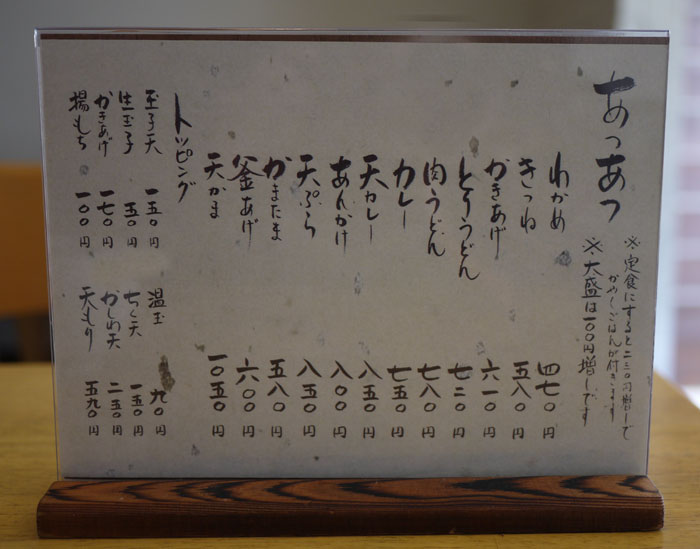 あつあつ
※定食にすると二三〇円増しで
かやくごはんが付きます
※大盛は一〇〇円増しです
わかめ 四七〇円
きつね 五八〇円
かきあげ 六一〇円
とりうどん 七三〇円
肉うどん 七八〇円
カレー 七五〇円
天カレー 八五〇円
あんかけ 八〇〇円
天ぷら 八五〇円
かまたま 五八〇円
釜あげ 六〇〇円
天かま 一〇五〇円
トッピング
玉子天 一五〇円
生玉子 五〇円
かきあげ 一七〇円
揚もち 一〇〇円
温玉 九〇円
ちく天 一五〇円
かしわ天 二五〇円
天もり 五九〇円